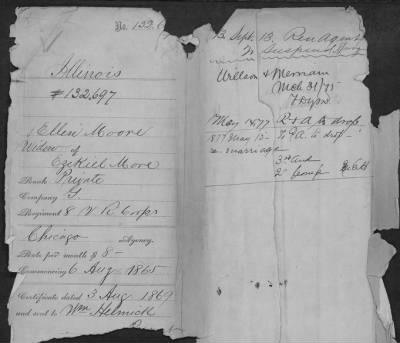 No. 132,6
Illinois
#132,697
Ellen Moore
Widow of
Ezekiel More
Rank Private
Company G.
Regiment 8 V R Corps
Chicago Agency.
Rate per month $ 8-
Commencing 6 Aug 1865
Certificate dated 3 Aug 1869
and sent to Wm Helmick
Sept 13. Pen Agent
To Suspend
Willson & Merriam
Mch 31/75
May 1877 R & A to drop
1877 May 15- to drop
re-marriage
3rd and
2"